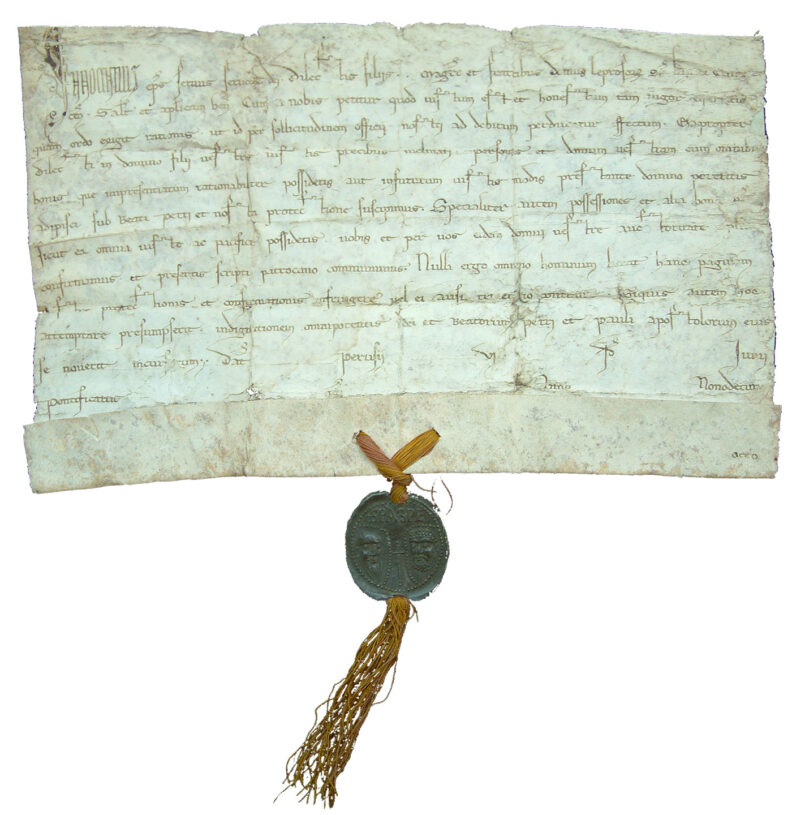 Innocentius eps servus servor di Dilect his filiis .. magro et fratribus domus leprosor de
Salt et aplicam ben Cum a nobis petitur quod iustum est et honestum tam vigor equitatis
quam ordo exigit rationis ut id per sollicitudinem officii nostri ad debitum perducatur effectum Eapropter
dilecti in domino filii vestris iustis precibus inclinati personas et domum vestram cum omnibus
bonis que impresentiarum rationabiliter possidetis aut infuturum iustis modis prestante domino poteritis
adipisci sub Beati petri et nostra protectione suscipimus. Specialiter autem possessiones et alia bona
sicut ea omnia iuste ac pacifice possidetis vobis et per vos eidem domui vestre auctoritate
confirmamus et presentis scripti patrocinio communimus. Nulli ergo omnino hominum liceat hanc paginam
protectionis et confirmationis infringere vel ei ausu Siquis autem hoc
attemptare presumpserit indignationem omnipotentis dei et Beatorum petri et pauli apostolorum eius
se noverit incursurum. Dat perusii vi Junii
pontificatus Anno Nonodecimo